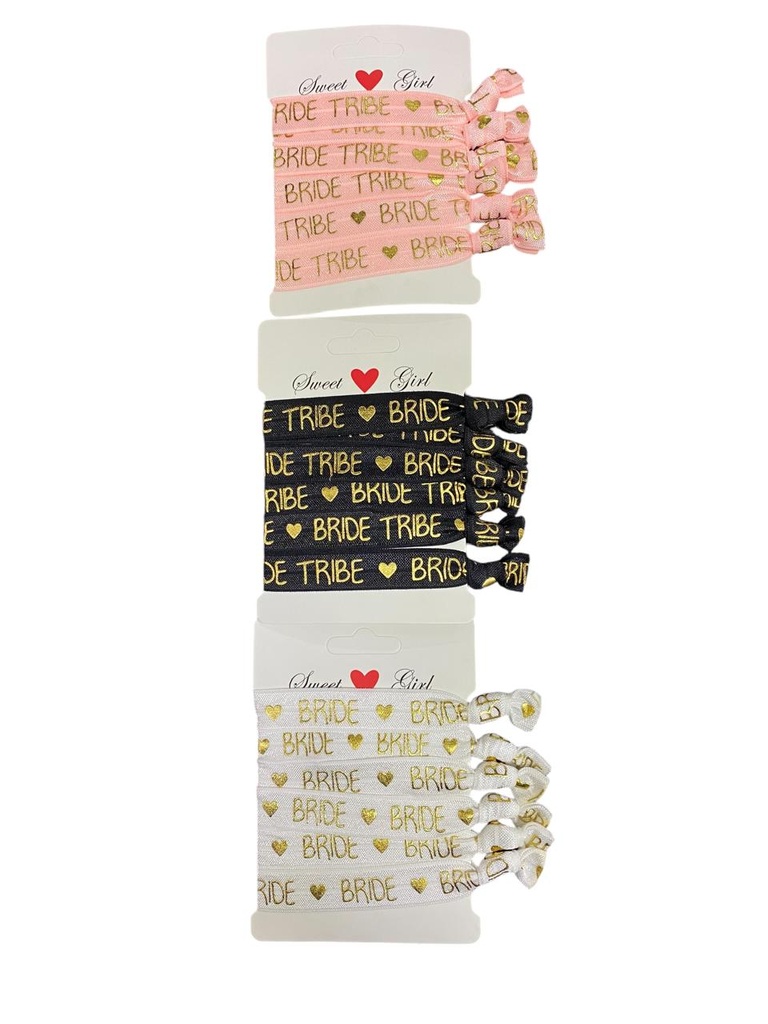 Sweet ♥ Girl
RIDE TRIBE ♥ B
BRIDE TRIBE
BRIDE TRIBE ♥ BR
BRIDE TRIBE ♥
TRIBE ♥ BRIDE T
IDE TRIBE ♥ BRIDE
Sweet ♥ Girl
E TRIBE ♥ BRIDE
TRIBE ♥ TRIBE
IDE TRIBE ♥ BRIDE
RIBE ♥ BRIDE TRIB
E ♥ BRIDE TRIBE ♥
DE TRIBE ♥ BRIDE
Sweet ♥ Girl
♥ BRIDE ♥ BRIDE
♥ BRIDE ♥ BRIDE ♥
♥ BRIDE ♥ BRIDE
♥ BRIDE ♥ BRIDE ♥
♥ BRIDE ♥ BRIDE
RIDE ♥ BRIDE ♥ BRID